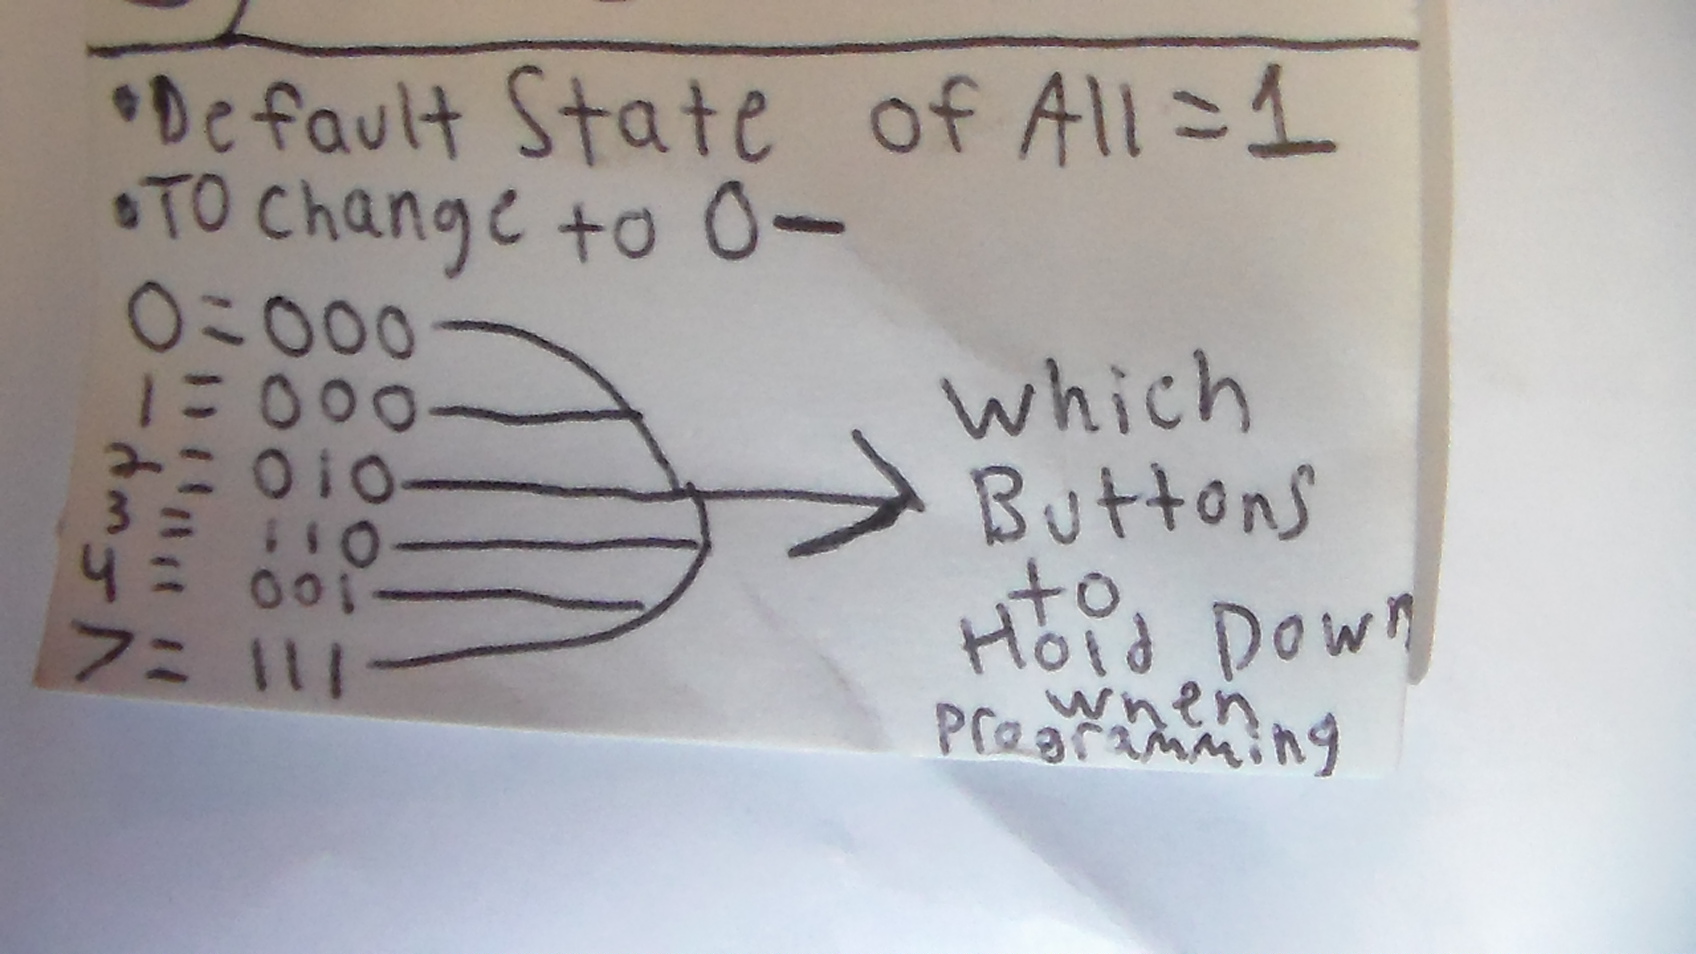 •Default State of All=1
•TO change to 0—
0=000
1=000
2=010
3=110
4=001
>=111
which
Buttons
to
Hold Down
when
Programming